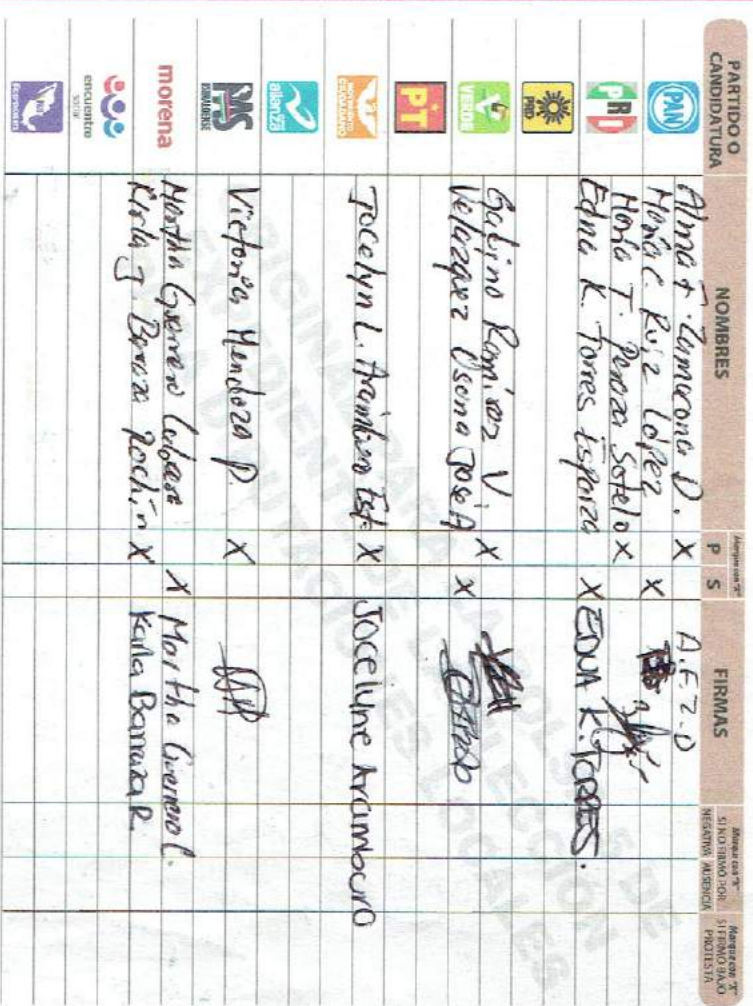 PARTIDO O CANDIDATURA
NOMBRES
Marque con "X"
P S
FIRMAS
Marque con "X" SI NO FIRMÓ POR:
NEGATIVA AUSENCIA
Marque con "X" SI FIRMÓ BAJO PROTESTA
PAN
Alma F. Zamarona D. X A.F.Z.D
María C. Ruiz López X
PRI
María T. Peraza Sotelo X
Edna K. Torres Esparza X EDNA K. TORRES.
PRD
VERDE
Gabino Ramirez V. X
Velazquez Osuna Jose A X
PT
MOVIMIENTO CIUDADANO
Jocelyn L. Arambura Est. X Jocelyne Aramburo
alianza
PAS
SINALOENSE
Victoria Mendoza P. X
morena
Martha Guerrero X Martha Guerrero C.
Karla J. Barraza Rochín X Karla Barraza R.
encuentro social
ORIGINAL PARA LA BOLSA DE
EXPEDIENTE DE LA ELECCIÓN
PARA DIPUTACIONES LOCALES